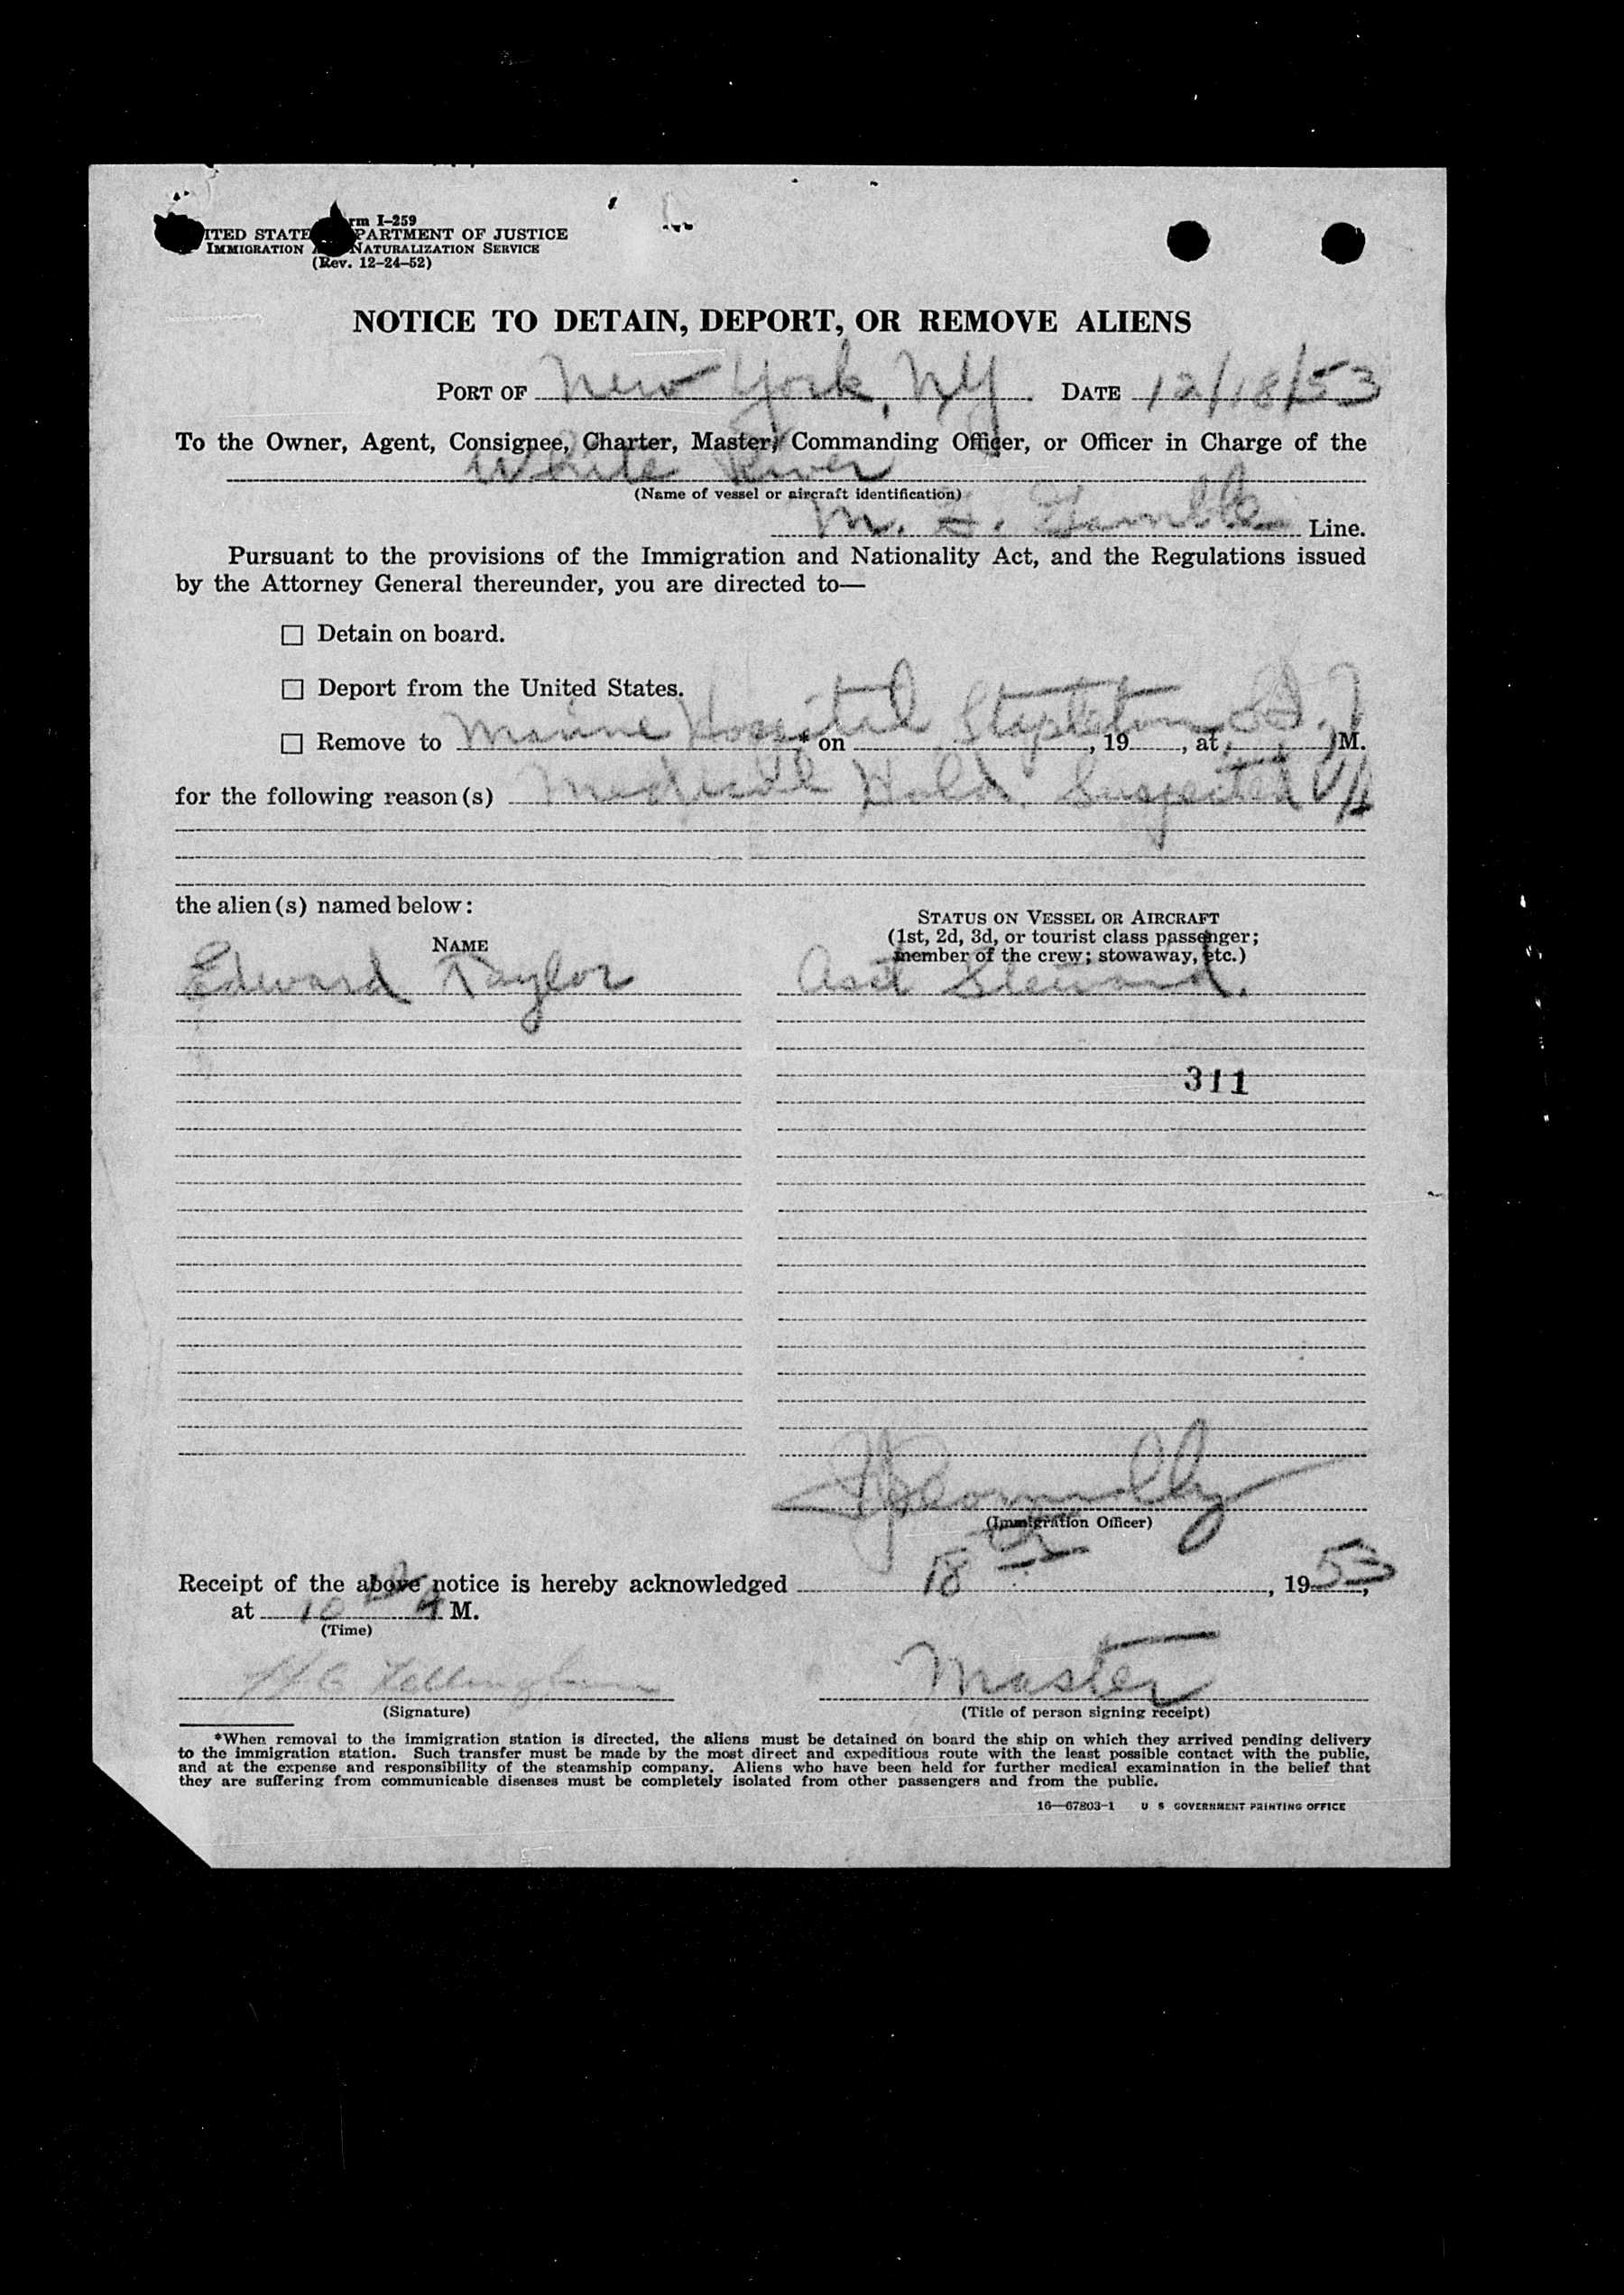 rm I-259
ITED STATE PARTMENT OF JUSTICE
IMMIGRATION NATURALIZATION SERVICE
(Rev. 12-24-52)
NOTICE TO DETAIN, DEPORT, OR REMOVE ALIENS
PORT OF New York, NY DATE 12/18/53
To the Owner, Agent, Consignee, Charter, Master, Commanding Officer, or Officer in Charge of the
White River
(Name of vessel or aircraft identification)
M. H. Gamble Line.
Pursuant to the provisions of the Immigration and Nationality Act, and the Regulations issued
by the Attorney General thereunder, you are directed to—
☐ Detain on board.
☐ Deport from the United States.
☐ Remove to Marine Hospital * on Stapleton, 19 , at S.I. M.
for the following reason(s) Medical Hold. Suspected
the alien(s) named below:
NAME
STATUS ON VESSEL OR AIRCRAFT
(1st, 2d, 3d, or tourist class passenger;
member of the crew; stowaway, etc.)
Edward Taylor Asst Steward.
311
(Immigration Officer)
Receipt of the above notice is hereby acknowledged 18th, 1953,
at 10 A M.
(Time)
Master
(Signature) (Title of person signing receipt)
*When removal to the immigration station is directed, the aliens must be detained on board the ship on which they arrived pending delivery
to the immigration station. Such transfer must be made by the most direct and expeditious route with the least possible contact with the public,
and at the expense and responsibility of the steamship company. Aliens who have been held for further medical examination in the belief that
they are suffering from communicable diseases must be completely isolated from other passengers and from the public.
16—67803-1 U S GOVERNMENT PRINTING OFFICE